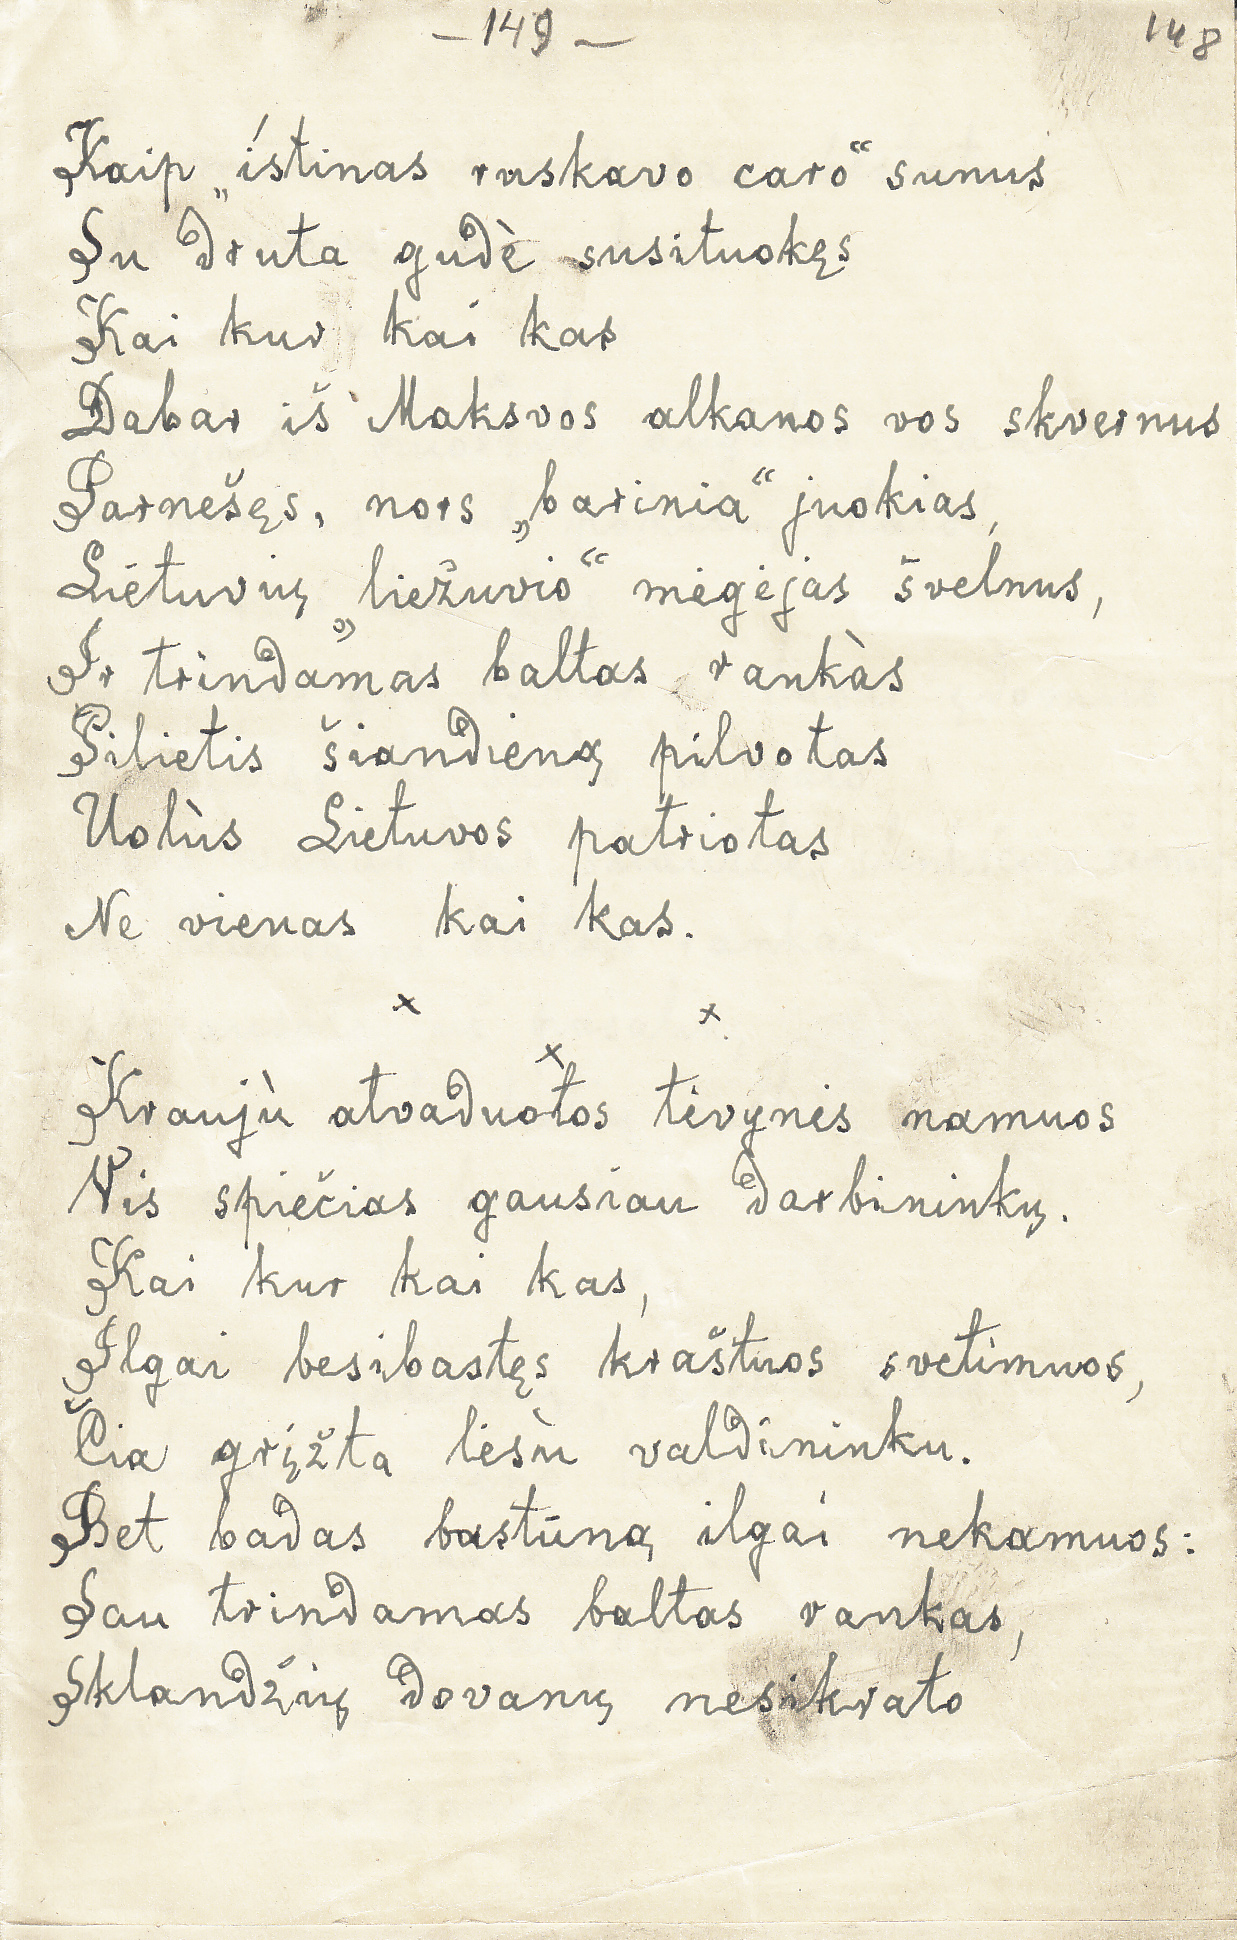 – 149 –
148
Kaip „istinas ruskavo caro“ sunus
Su druta gudè susituokęs
Kai kur kai kas
Dabar iš Maksvos alkanos vos skvernus
Parnešęs, nors „barinia“ juokias,
Lietuvių „liežuvio“ mėgėjas švelnus,
Ir trindamas baltas rankàs
Pilietis šiandieną pilvotas
Uolùs Lietuvos patriotas
Ne vienas kai kas.
x x
x
Kraujù atvaduotos tėvynės namuos
Vis spiečias gausiau darbininkų.
Kai kur kai kas,
Ilgai besibastęs kraštuos svetimuos,
Čia grįžta lėsù valdininku.
Bet badas bastūną ilgai nekamuos:
Sau trindamas baltas rankas,
Sklandžių dovanų nesikrato